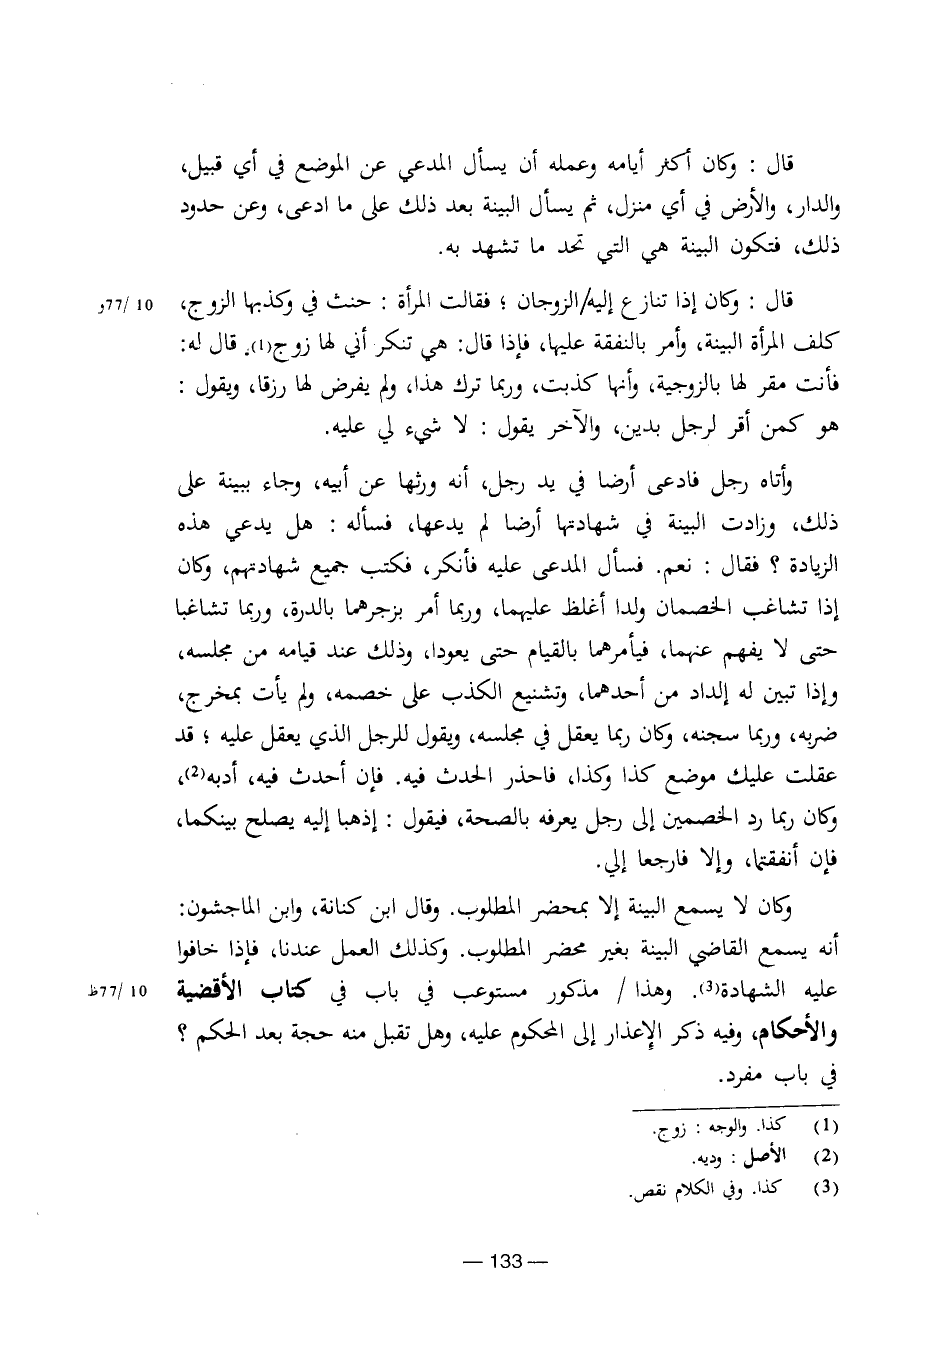 قال : وكان أكثر أيامه وعمله أن يسأل المدعي عن الموضع في أي قبيل،
والدار، والأرض في أي منزل، ثم يسأل البينة بعد ذلك على ما ادعى، وعن حدود
ذلك، فتكون البينة هي التي تحد ما تشهد به.
قال : وكان إذا تنازع إليه/الزوجان ؛ فقالت المرأة : حنث في وكذبها الزوج، 10 /77و
كلف المرأة البينة، وأمر بالنفقة عليها، فإذا قال: هي تنكر أني لها زوج(1). قال له:
فأنت مقر لها بالزوجية، وأنها كذبت، وربما ترك هذا، ولم يفرض لها رزقا، ويقول :
هو كمن أقر لرجل بدين، والآخر يقول : لا شيء لي عليه.
وأتاه رجل فادعى أرضا في يد رجل، أنه ورثها عن أبيه، وجاء ببينة على
ذلك، وزادت البينة في شهادتها أرضا لم يدعها، فسأله : هل يدعي هذه
الزيادة ؟ فقال : نعم. فسأل المدعى عليه فأنكر، فكتب جميع شهادتهم، وكان
إذا تشاغب الخصمان ولدا أغلظ عليهما، وربما أمر بزجرهما بالدرة، وربما تشاغبا
حتى لا يفهم عنهما، فيأمرهما بالقيام حتى يعودا، وذلك عند قيامه من مجلسه،
وإذا تبين له إلداد من أحدهما، وتشنيع الكذب على خصمه، ولم يأت بمخرج،
ضربه، وربما سجنه، وكان ربما يعقل في مجلسه، ويقول للرجل الذي يعقل عليه ؛ قد
عقلت عليك موضع كذا وكذا، فاحذر الحدث فيه. فإن أحدث فيه، أدبه(2)،
وكان ربما رد الخصمين إلى رجل يعرفه بالصحة، فيقول : إذهبا إليه يصلح بينكما،
فإن أنفقتما، وإلا فارجعا إلي.
وكان لا يسمع البينة إلا بمحضر المطلوب. وقال ابن كنانة، وابن الماجشون:
أنه يسمع القاضي البينة بغير محضر المطلوب. وكذلك العمل عندنا، فإذا خافوا
عليه الشهادة(3). وهذا / مذكور مستوعب في باب في كتاب الأقضية 10 /77ظ
والأحكام، وفيه ذكر الإعذار إلى المحكوم عليه، وهل تقبل منه حجة بعد الحكم ؟
في باب مفرد.
(1) كذا. والوجه : زوج.
(2) الأصل : وديه.
(3) كذا. وفي الكلام نقص.
— 133 —